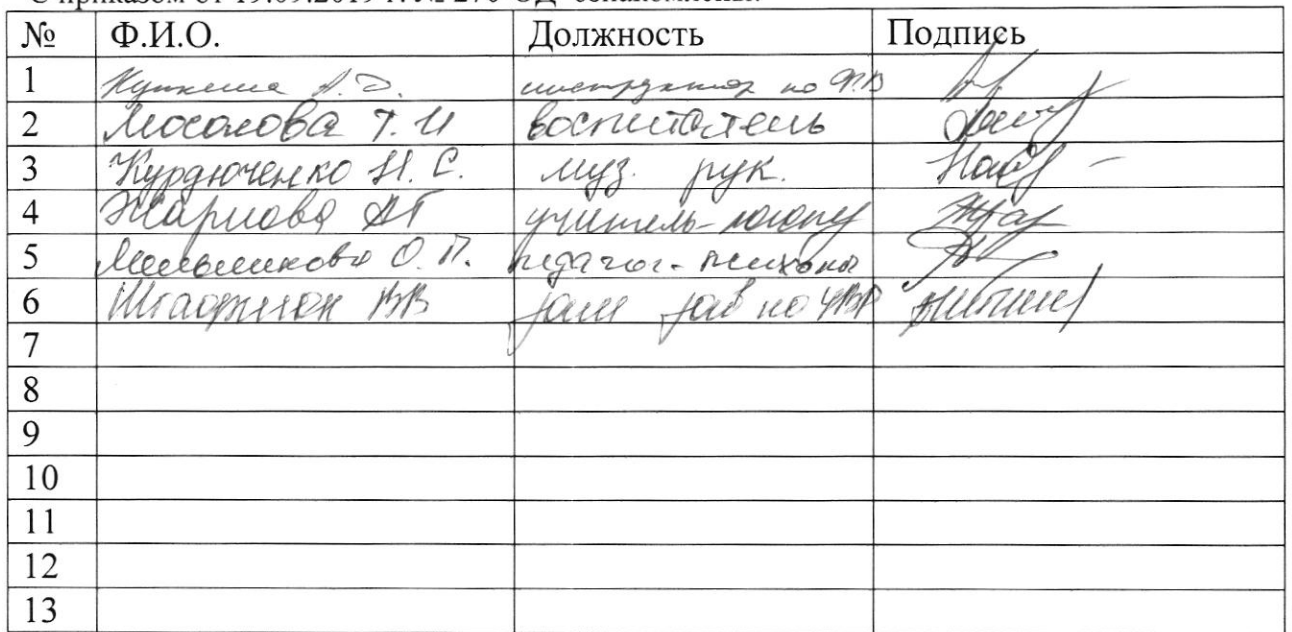 С приказом от 19.09.2019 г. № 270-ОД ознакомлены:
№ Ф.И.О. Должность Подпись
1 А.Э. инструктор по ФВ
2 Мосолова Т.И воспитатель
3 Курдюченко Н.С. муз. рук.
4 Жарикова АГ учитель-логопед
5 Мельникова О.П. педагог-психолог
6 ВВ зам зав по УВР
7
8
9
10
11
12
13